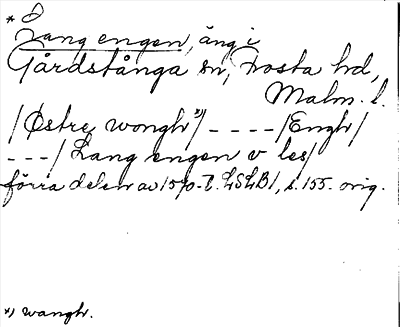 * Ö
Lang engen, äng i
Gårdstånga sn, Frosta hd,
Malm. l.
/Østre wonghꝛ*)/ - - - - /Enghꝛ/
- - - / Lang engen v les/
förra delen av 1570-t. LSLB1, s. 155. orig.
*) wanghꝛ.